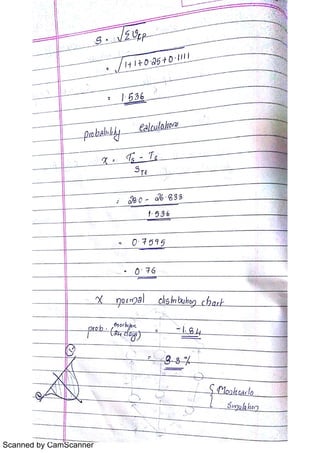 S = √Σ σcp
= √1+1+0.25+0.1111
= 1.536
probability calculations
x = Ts - Ts
STs
= 280 - 26.833
1.536
= 0.7595
= 0.76
x normal distribution chart
prob. (24 days) = -1.84
= 3.3%
{ Montecarlo
Simulation
Scanned by CamScanner